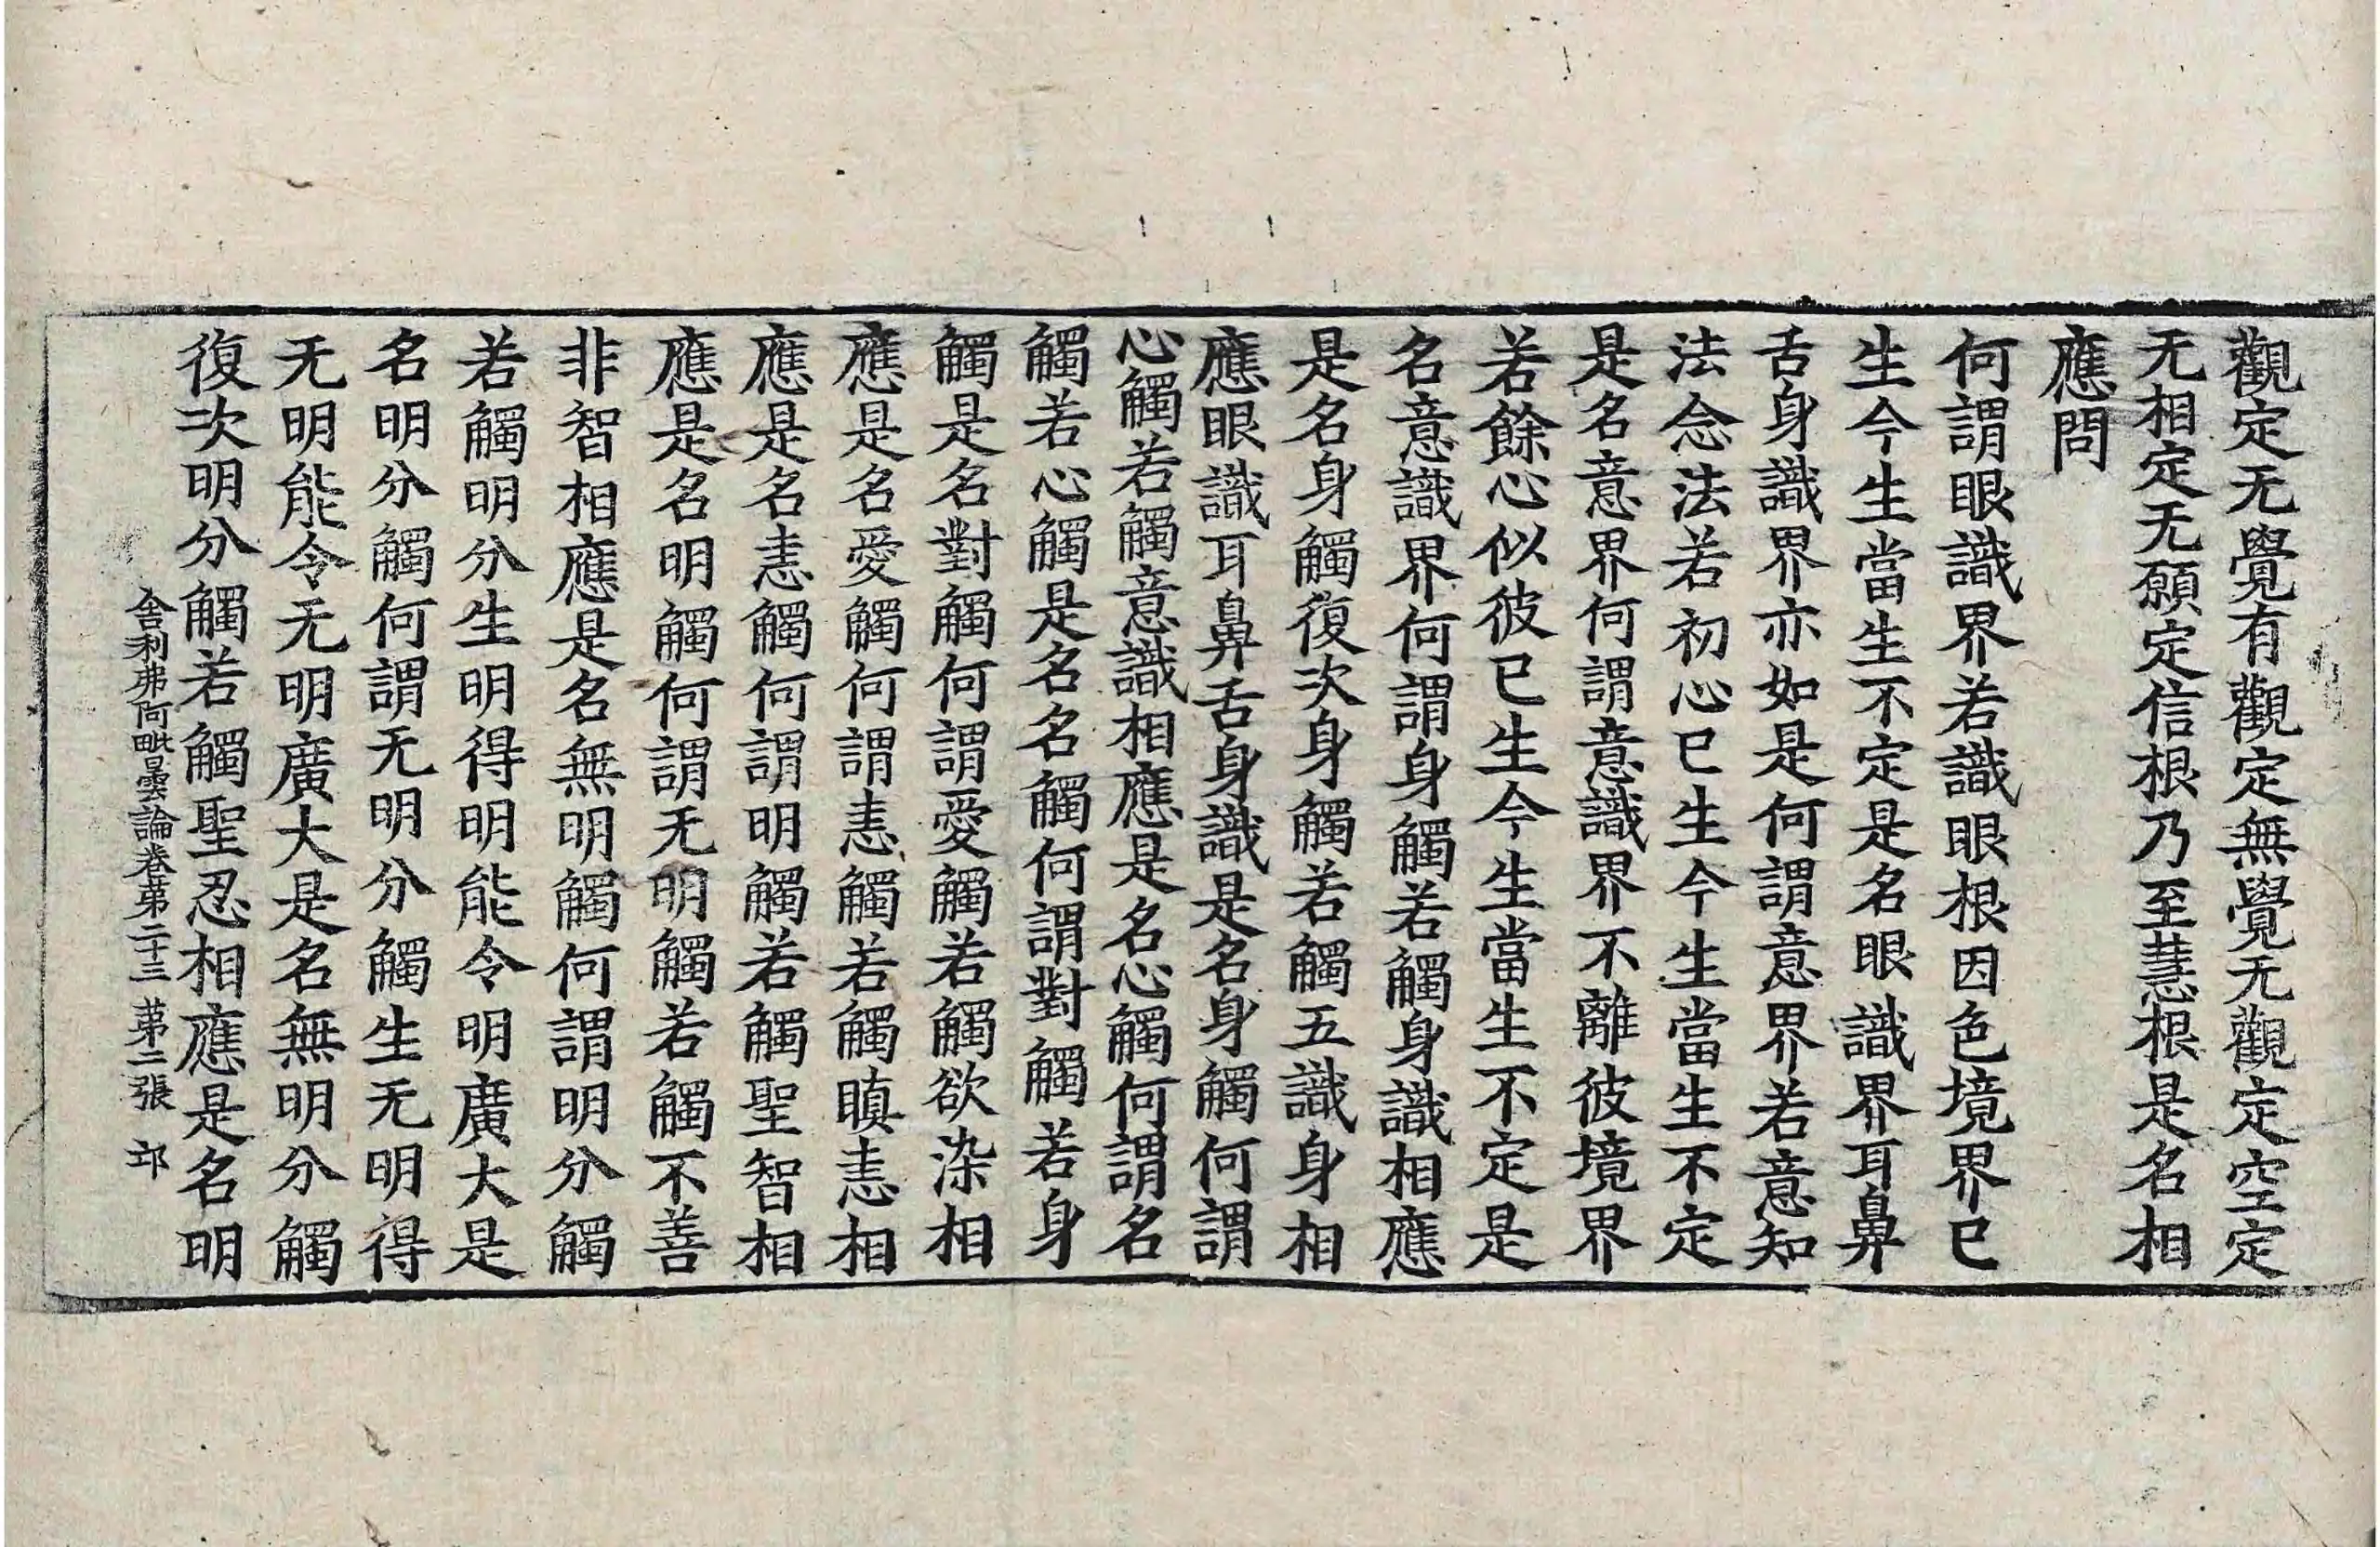 觀定无覺有觀定無覺无觀定空定
无相定无願定信根乃至慧根是名相
應問
何謂眼識界若識眼根因色境界已
生今生當生不定是名眼識界耳鼻
舌身識界亦如是何謂意界若意知
法念法若初心已生今生當生不定
是名意界何謂意識界不離彼境界
若餘心似彼已生今生當生不定是
名意識界何謂身觸若觸身識相應
是名身觸復次身觸若觸五識身相
應眼識耳鼻舌身識是名身觸何謂
心觸若觸意識相應是名心觸何謂名
觸若心觸是名名觸何謂對觸若身
觸是名對觸何謂愛觸若觸欲染相
應是名愛觸何謂恚觸若觸瞋恚相
應是名恚觸何謂明觸若觸聖智相
應是名明觸何謂无明觸若觸不善
非智相應是名無明觸何謂明分觸
若觸明分生明得明能令明廣大是
名明分觸何謂无明分觸生无明得
无明能令无明廣大是名無明分觸
復次明分觸若觸聖忍相應是名明
舍利弗阿毗曇論卷苐二十三 苐二張 邙